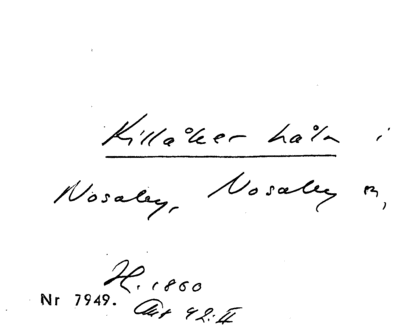 Killåker håln i
Nosaby, Nosaby
H. 1860
Nr 7949. 42:II